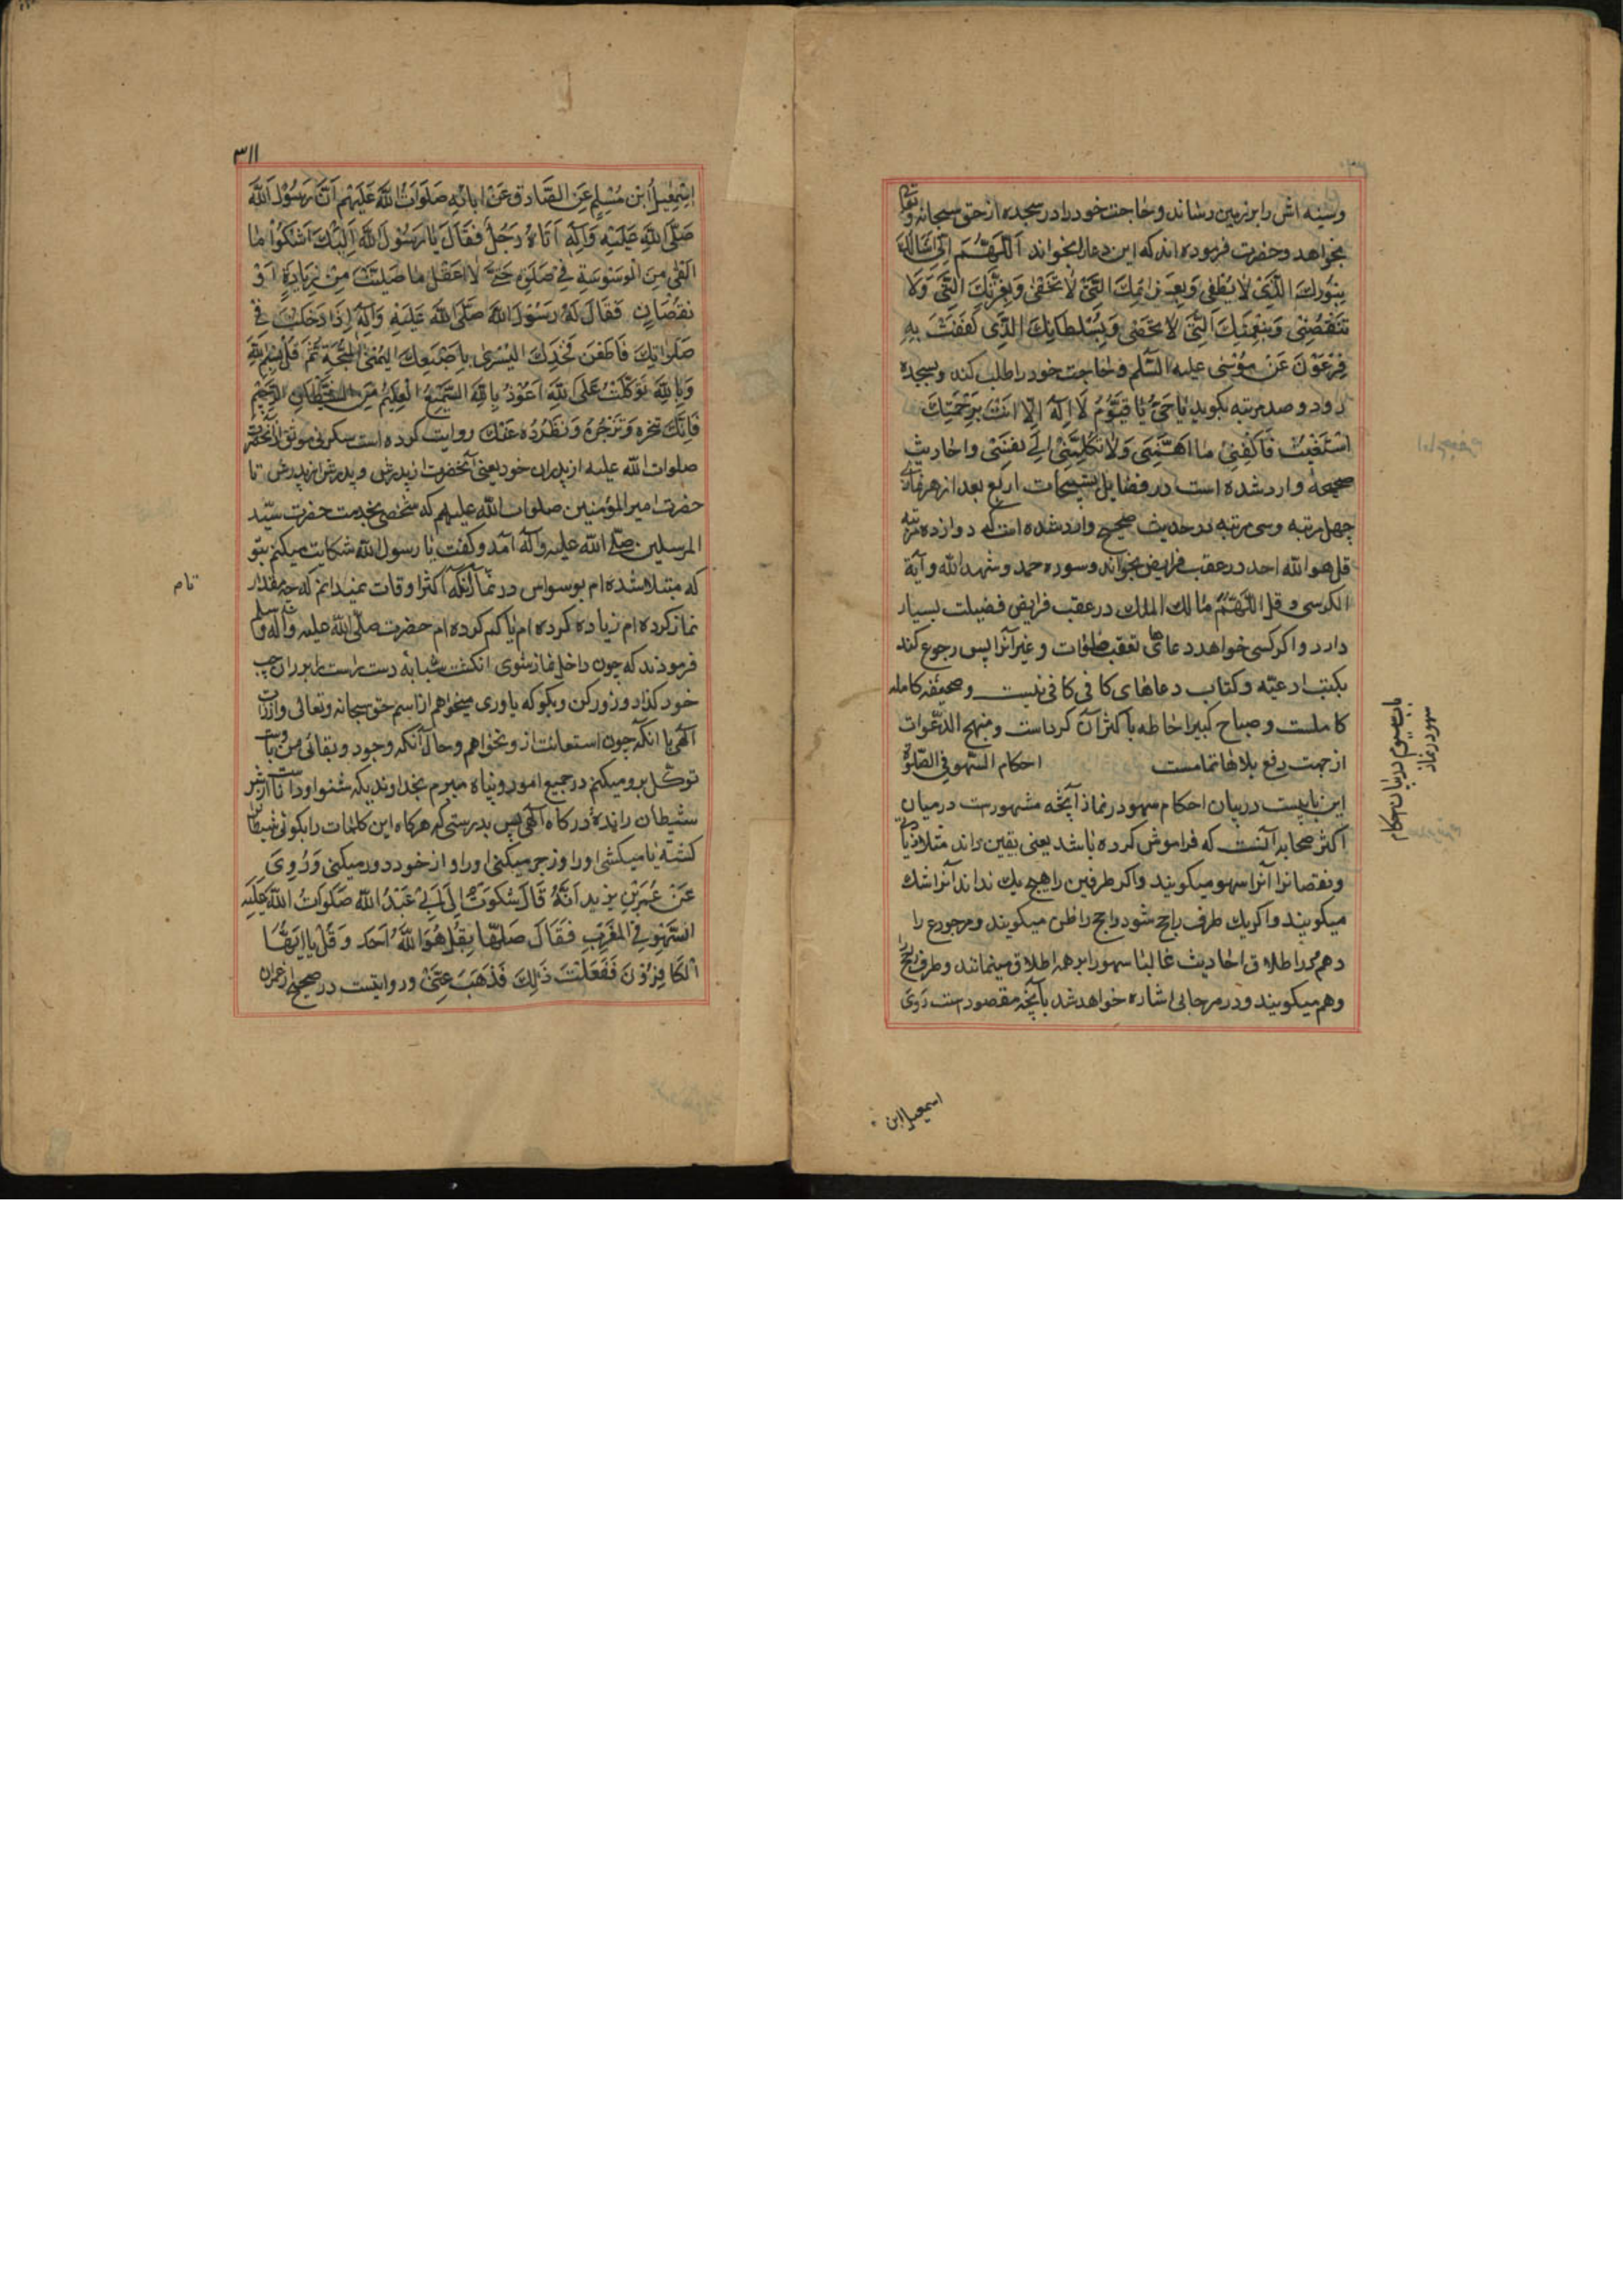 وسینه اش را برزمین رساند و حاجت خود را در سجده از حق سبحانه وتعالی
بخواهد وحضرت فرموده اند که این دعا را بخواند اَللّهُمَّ اِنّی اَسْاَلُکَ
بِنُورِکَ الَّذی لا یُطْفی وَبِعَزائِمِکَ الَّتی لا تَخْفی وَبِعِزَّتِکَ الَّتی وَلا
تَنْقَضِی وَبِنِعْمَتِکَ الَّتی لا تُحْصی وَبِسُلْطانِکَ الَّذی کَفَفْتَ بِهِ
فِرْعَوْنَ عَنْ مُوسی علیه السّلم و حاجت خود را طلب کند وبسجده
رود و صد مرتبه بکوید یا حَیُّ یا قَیُّومُ لا اِلهَ اِلّا اَنْتَ بِرَحْمَتِکَ
اَسْتَغِیثُ فَاَکْفِنی ما اَهَمَّنی وَلا تَکِلْنی اِلی نَفْسی واحادیث
صحیحه وارد شده است در فضایل تسبیحات اربع بعد از هر نمازی
چهل مرتبه وسی مرتبه ودر حدیث صحیح وارد شده است که دوازده مرتبه
قل هو الله احد در عقب فرایض بخواند وسوره حمد وشهد الله وآیة
الکرسی و قل اللّهمّ مالک الملک در عقب فرایض فضیلت بسیار
دارد واکر کسی خواهد دعاهای تعقب صلوات و غیر آنرا پس رجوع کند
بکتب ادعیّه وکتاب دعاهای کافی کافی نیست وصحیفه کامله
کاملست و مصباح کبیر احاطه باکثر آن کرداست ومنهج الدّعوات
از جهت رفع بلاها تمامست احکام السّهو فی الصّلوة
این بابیست در بیان احکام سهو در نماز آنچه مشهورست در میان
اکثر صحابه آنست که فراموش کرده باشد یعنی یقین داند مثلا زیادتی
ونقصانرا آنرا سهو میکویند واکر طرفین را هیچ یک نداند آنرا شک
میکویند واکر یک طرف راجح شود راجح را ظن میکویند ومرجوح را
وهم ودر اطلاق احادیث غالبا سهو را بر همه اطلاق مینمایند وطرف راجح
وهم میکویند ودر هر جائی اشاره خواهد شد بآنچه مقصود است رَوی
باب سیم در بیان احکام
سهو در نماز
اسمعیل ابن
٣١١
اِسْمعیلُ ابْن مُسْلِمٍ عَنِ الصّادِقِ عَنْ ابائِهِ صَلَواتُ اللّهِ عَلَیْهِم اَنَّ رَسُولَ اللّهَ
صَلَّی اللّهُ عَلَیْهِ وَآلِهِ اَتاهُ رَجُلٌ فَقالَ یا رَسُولَ اللّهِ اِلَیْکَ اَشْکُوا ما
اَلْقی مِنَ الْوَسْوَسَةِ فی صَلوتی حَتّی لا اَعْقِلُ ما صَلَّیْتُ مِنْ زِیادَةٍ اَوْ
نُقْصانٍ فَقالَ لَهُ رَسُولُ اللّهِ صَلَّی اللّهُ عَلَیْهِ وَآلِهِ اِذا دَخَلْتَ فی
صَلوتِکَ فَاطْعَنْ فَخْذِکَ الْیُسْری بِاِصْبَعِکَ الْیُمْنی الْمُسَبِّحَةِ ثُمَّ قُلْ بِسْمِ اللّهِ
وَبِاللّهِ تَوَکَّلْتُ عَلَی اللّهِ اَعُوذُ بِاللّهِ السَّمیعِ الْعَلیمِ مِنَ الشَّیْطانِ الرَّجیمِ
فَاِنَّکَ تنحره وَتَزْجُرُهُ وَتَطْرُدُهُ عَنْکَ روایت کرده است سکونی موثق از آنحضرت
صلوات الله علیه از پدران خود یعنی آنحضرت از پدرش و پدرش از پدرش تا
حضرت امیر المؤمنین صلوات الله علیهم که شخصی بخدمت حضرت سیّد
المرسلین صلّی الله علیه وآله آمد وکفت یا رسول الله شکایت میکنم بتو
که مبتلا شده ام بوسواس در نماز آنکه اکثر اوقات نمیدانم که چه مقدار
تام
نماز کرده ام زیاده کرده ام یا کم کرده ام حضرت صلّی الله علیه وآله وسلم
فرمودند که چون داخل نماز شوی انکشت سبابه دست راست را بر ران چپ
خود کذار و زور کن وبکو که یاوری میخواهم از اسم حق سبحانه وتعالی واز ذات
الهی با آنکه چون استعانت از و نخواهم وحال آنکه وجود و بقائی من باوست
توکّل بر و میکنم در جمیع امور وپناه میبرم بخداوندیکه شنوا و داناست از شر
شیطان رانده درکاه الهی پس بدرستی که هرکاه این کلمات را بکوئی شیطان
کشته یا میکشی او را وزجر میکنی او را و از خود دور میکنی وَرُوِیَ
عَنْ عُمَرَبْنِ یزید اَنَّهُ قالَ شَکَوْتُ اِلی اَبی عَبْدُ اللّه صَلَواتُ اللّه عَلَیْهِ
السَّهْوَ فی الْمَغْرِبِ فَقالَ صَلِّها بِقُلْ هُوَ اللّهُ اَحَد وَقُلْ یا اَیُّهَا
الْکافِرُونَ فَفَعَلْتُ ذلِکَ فَذَهَبَ عَنّی وروایتست در صحیح از عمران